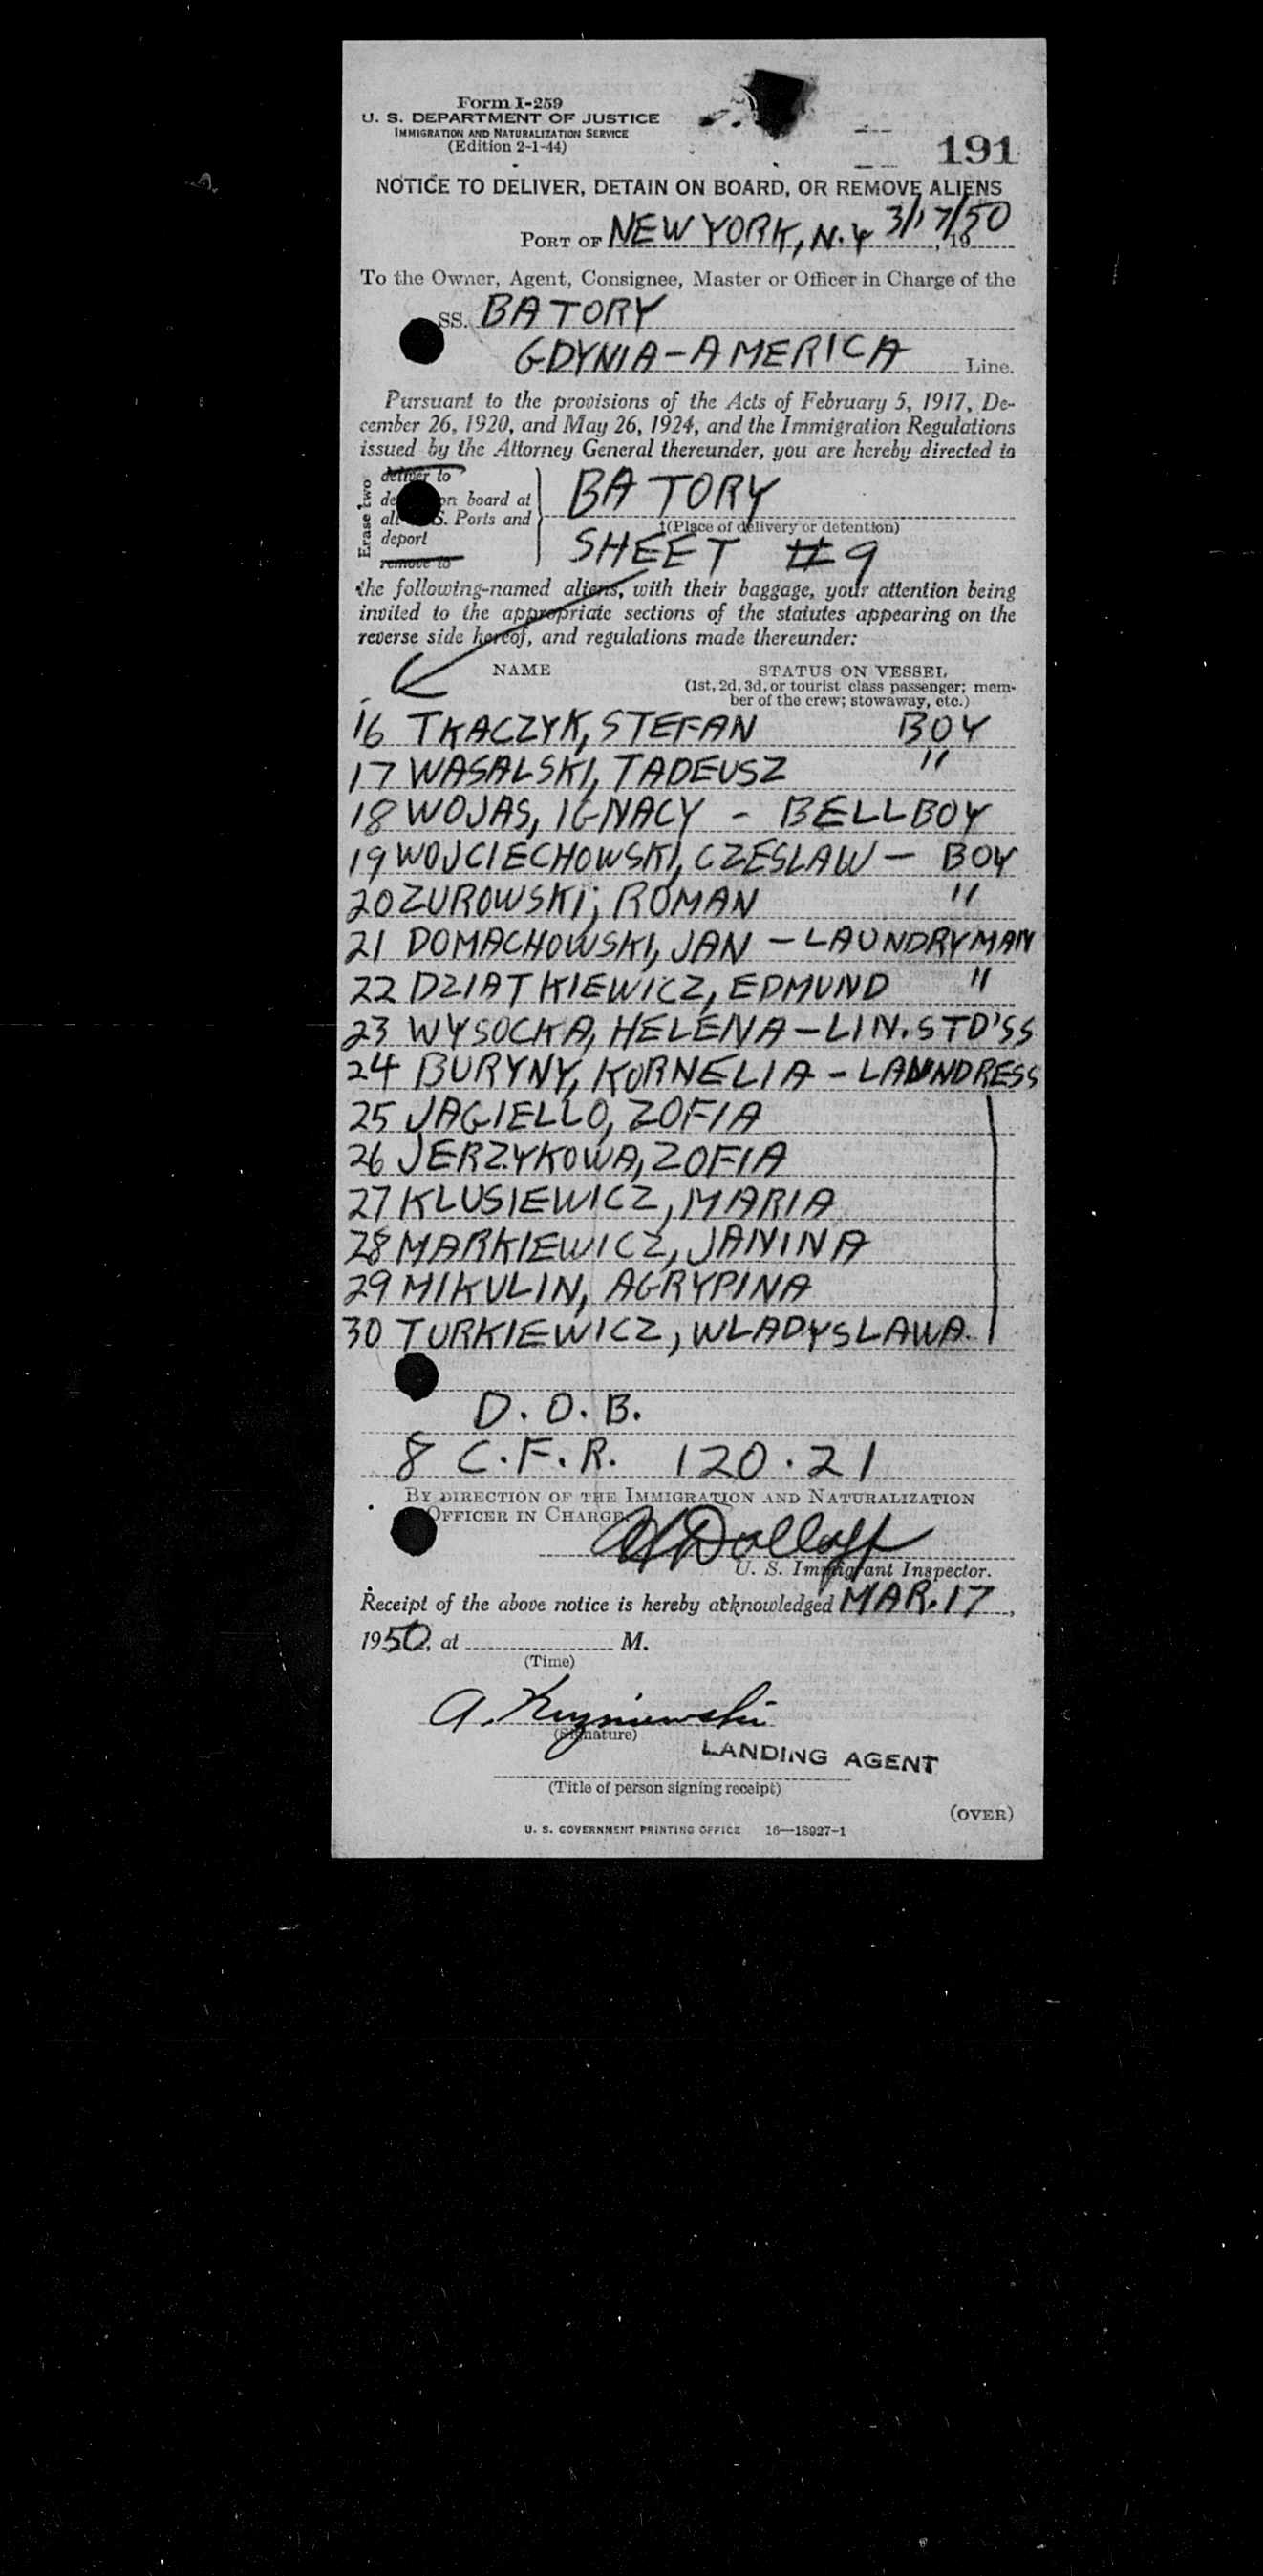 Form I-259
U. S. DEPARTMENT OF JUSTICE
IMMIGRATION AND NATURALIZATION SERVICE
(Edition 2-1-44)
191
NOTICE TO DELIVER, DETAIN ON BOARD, OR REMOVE ALIENS
PORT OF NEW YORK, N.Y 3/17/50, 19
To the Owner, Agent, Consignee, Master or Officer in Charge of the
SS. BATORY
GDYNIA-AMERICA Line.
Pursuant to the provisions of the Acts of February 5, 1917, De-
cember 26, 1920, and May 26, 1924, and the Immigration Regulations
issued by the Attorney General thereunder, you are hereby directed to
Erase two
deliver to
on board at
S. Ports and
deport
remove to
BATORY
(Place of delivery or detention)
SHEET #9
the following-named aliens, with their baggage, your attention being
invited to the appropriate sections of the statutes appearing on the
reverse side hereof, and regulations made thereunder:
NAME STATUS ON VESSEL
(1st, 2d, 3d, or tourist class passenger; mem-
ber of the crew; stowaway, etc.)
16 TKACZYK, STEFAN BOY
17 WASALSKI, TADEUSZ "
18 WOJAS, IGNACY - BELLBOY
19 WOJCIECHOWSKI, CZESLAW - BOY
20 ZUROWSKI, ROMAN "
21 DOMACHOWSKI, JAN - LAUNDRYMAN
22 DZIATKIEWICZ, EDMUND "
23 WYSOCKA, HELENA - LIN. STD'SS
24 BURYNY, KORNELIA - LAUNDRESS
25 JAGIELLO, ZOFIA
26 JERZYKOWA, ZOFIA
27 KLUSIEWICZ, MARIA
28 MARKIEWICZ, JANINA
29 MIKULIN, AGRYPINA
30 TURKIEWICZ, WLADYSLAWA.
D.O.B.
8 C.F.R. 120.21
BY DIRECTION OF THE IMMIGRATION AND NATURALIZATION
OFFICER IN CHARGE
Dolloff
U. S. Immigrant Inspector.
Receipt of the above notice is hereby acknowledged MAR. 17,
1950, at M.
(Time)
A.
(Signature)
LANDING AGENT
(Title of person signing receipt)
(OVER)
U. S. GOVERNMENT PRINTING OFFICE 16—18927-1